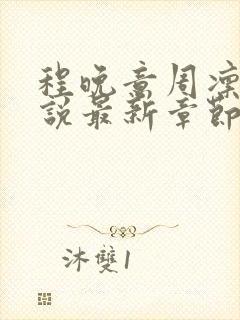 程晚意周凜
說最新章節
沐雙1